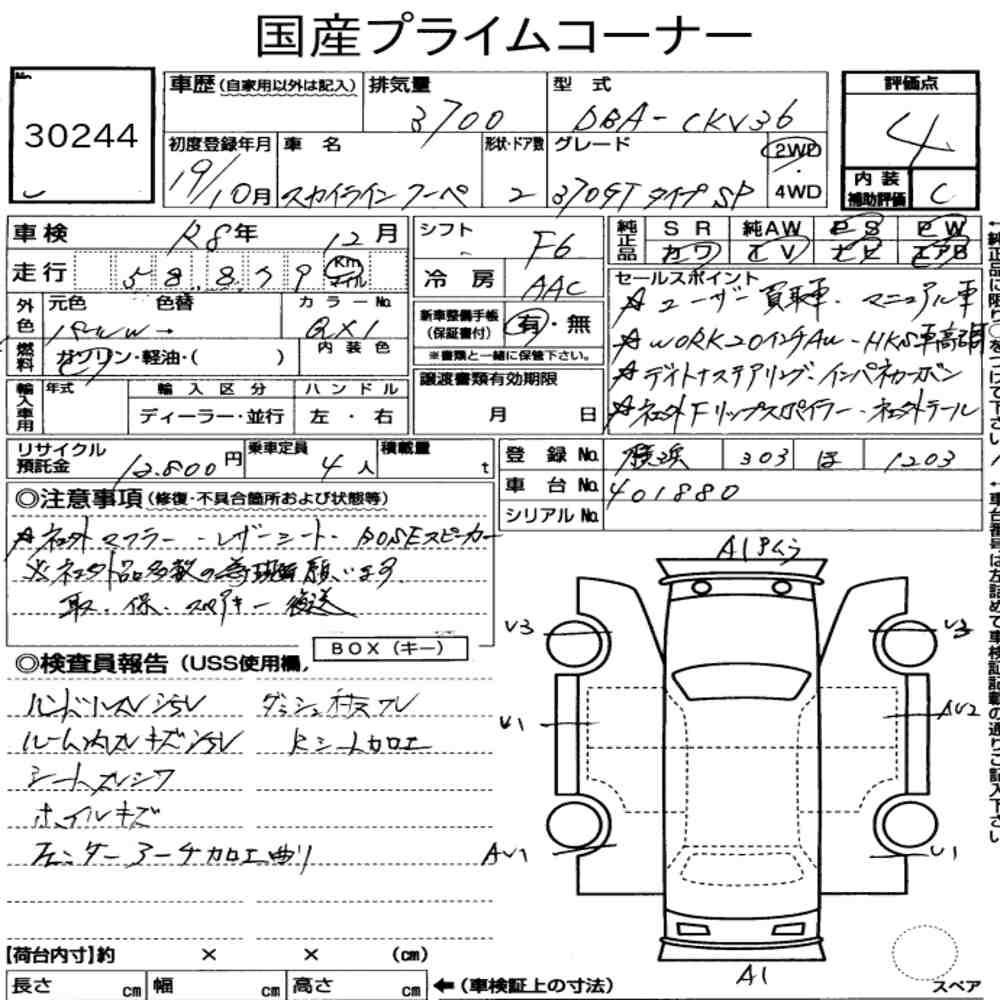 国産プライムコーナー
No.
30244
車歴(自家用以外は記入)
排気量
3700
型式
DBA-CKV36
評価点
4
初度登録年月
19/10月
車名
スカイラインクーペ
形状・ドア数
2
グレード
370GT タイプSP
2WD
4WD
内装
補助評価
C
車検
R8年 12月
走行
58,879 Km
マイル
シフト
F6
冷房
AAC
純正品
SR 純AW PS PW
カワ TV ナビ エアB
セールスポイント
☆ユーザー買取車・マニュアル車
☆WORK20インチAW・HKS車高調
☆デイトナステアリング・インパネカーボン
☆社外Fリップスポイラー・社外テール
外色
元色 色替
パール →
カラーNo.
QX1
内装色
燃料
ガソリン・軽油・( )
新車整備手帳
(保証書付)
有・無
※書類と一緒に保管下さい。
輸入車用
年式
輸入区分
ディーラー・並行
ハンドル
左・右
譲渡書類有効期限
月 日
リサイクル
預託金
12.800円
乗車定員
4人
積載量
t
登録No.
横浜 303 ほ 1203
車台No.
401880
シリアルNo.
◎注意事項(修復・不具合箇所および状態等)
☆社外マフラー・レザーシート・BOSEスピーカー
※社外品多数の為現車確認願います
取・保・スペアキー後送
BOX(キー)
◎検査員報告(USS使用欄)
ハンドルスレシミ ダッシュ枠スレ
ルーム内スレキズシミ Rシート加工
シートスレシワ
ホイルキズ
フェンダーアーチカロエ曲リ
A1 Pムラ
U3
U3
U1
AU2
AU1
U1
A1
【荷台内寸】約 × × (cm)
長さ cm 幅 cm 高さ cm ←(車検証上の寸法)
スペア
↑純正品に限り○をつけて下さい
↑車台番号は左詰めで車検証記載の通りご記入下さい